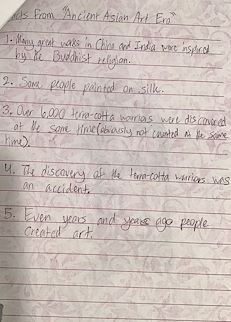 acts From "Ancient Asian Art Era"
1. Many great walks in China and India were inspired
by the Buddhist religion.
2. Some people painted on silk.
3. Over 6,000 terra-cotta warriors were discovered
at the same time (obviously not counted at the same
time).
4. The discovery of the terra-cotta warriors was
an accident.
5. Even years and years ago people
created art.